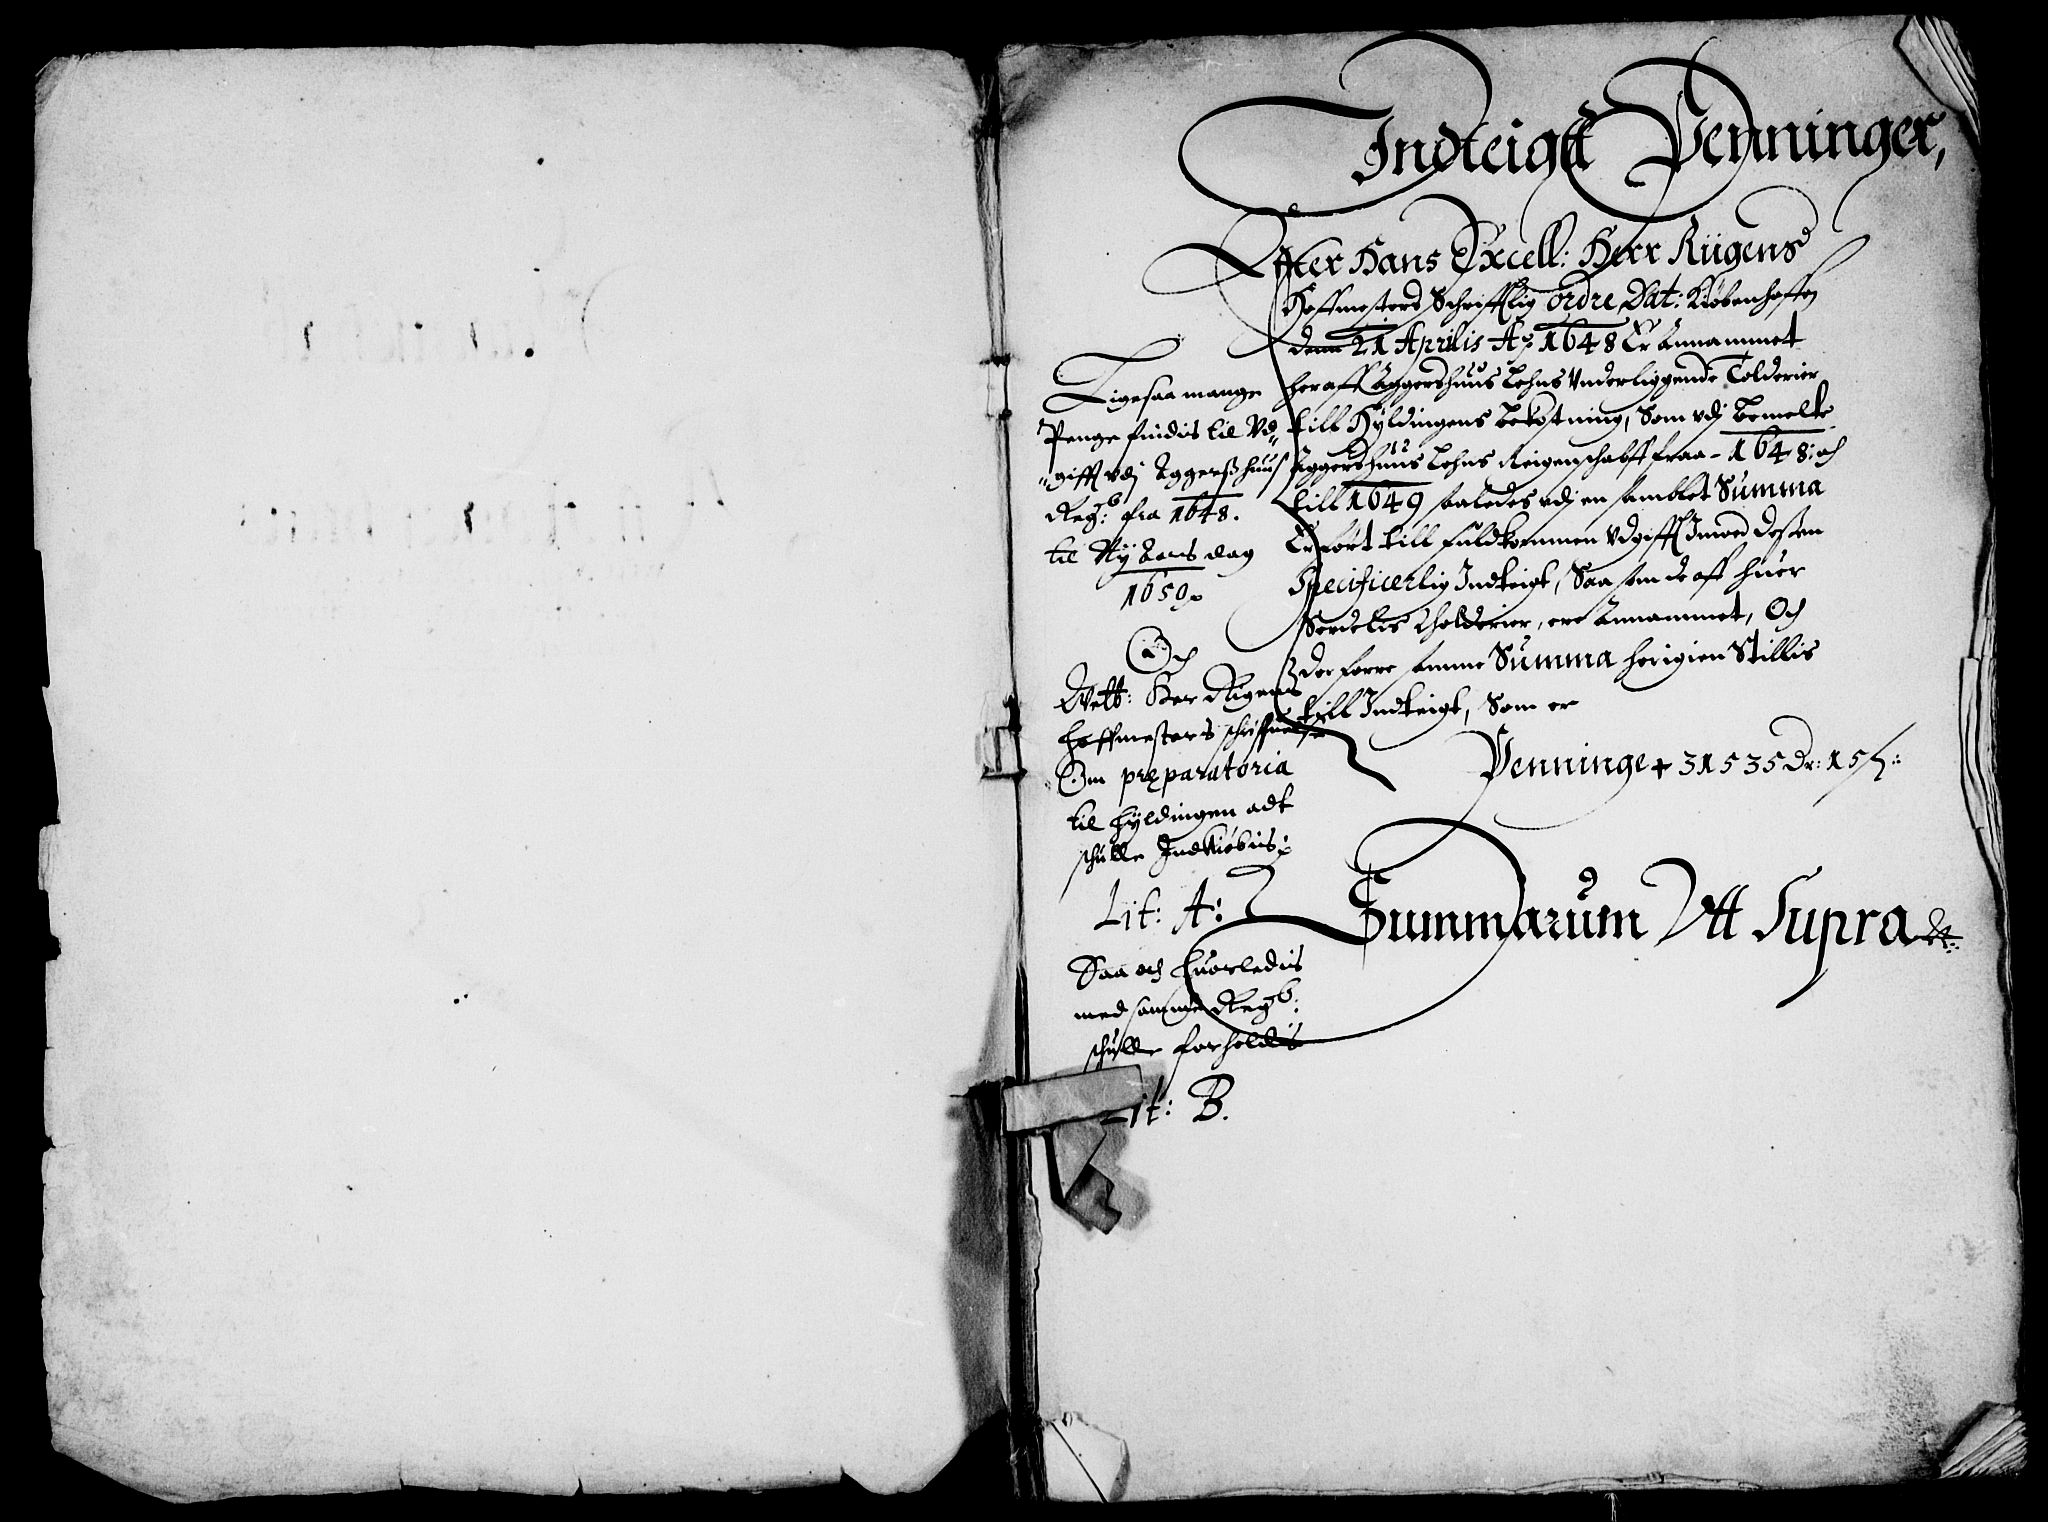 Indteigtt Penninger,
Efter Hans Excell: Herr Rügens
Hoffmesters Schrifftlig ordre, Dat: Kiøbenhafn
denn 21 Aprilis Aō. 1648 Er Annammet
her aff Aggershuus Lehns Underliggende Tolderier
till Hyldingens bekostning, Som udj bemelte
Aggershuus Lehns Reigenschabff fraa - 1648: och
till 1649 saaledes udj en samblet Summa
Er ført till fuldkommen Udgifft Imoed dessen
Specificerlig Indteigt, Saa som de aff huer
Serdelis Tholderier, ere Annammet, Och
derforre samme Summa herigien Stillis
till Indteigt, Som er
Penninge + 31535 Dr: 15 ß:
Summarum Utt Supra &c:
Ligesaa mange
Penge findis til Ud„
„gifft udj Aggerßhuus
Regb: fra 1648.
til Nÿ Aars dag
1650
Och
Welb: Her Rigens
Hoffmesters schriffuelse
Om preparatoria
til Hyldingen adt
schulle Indkiøbis:
Lit: A:
Saa och huorledis
med samme Regb:
schulle forholdis
Lit: B.